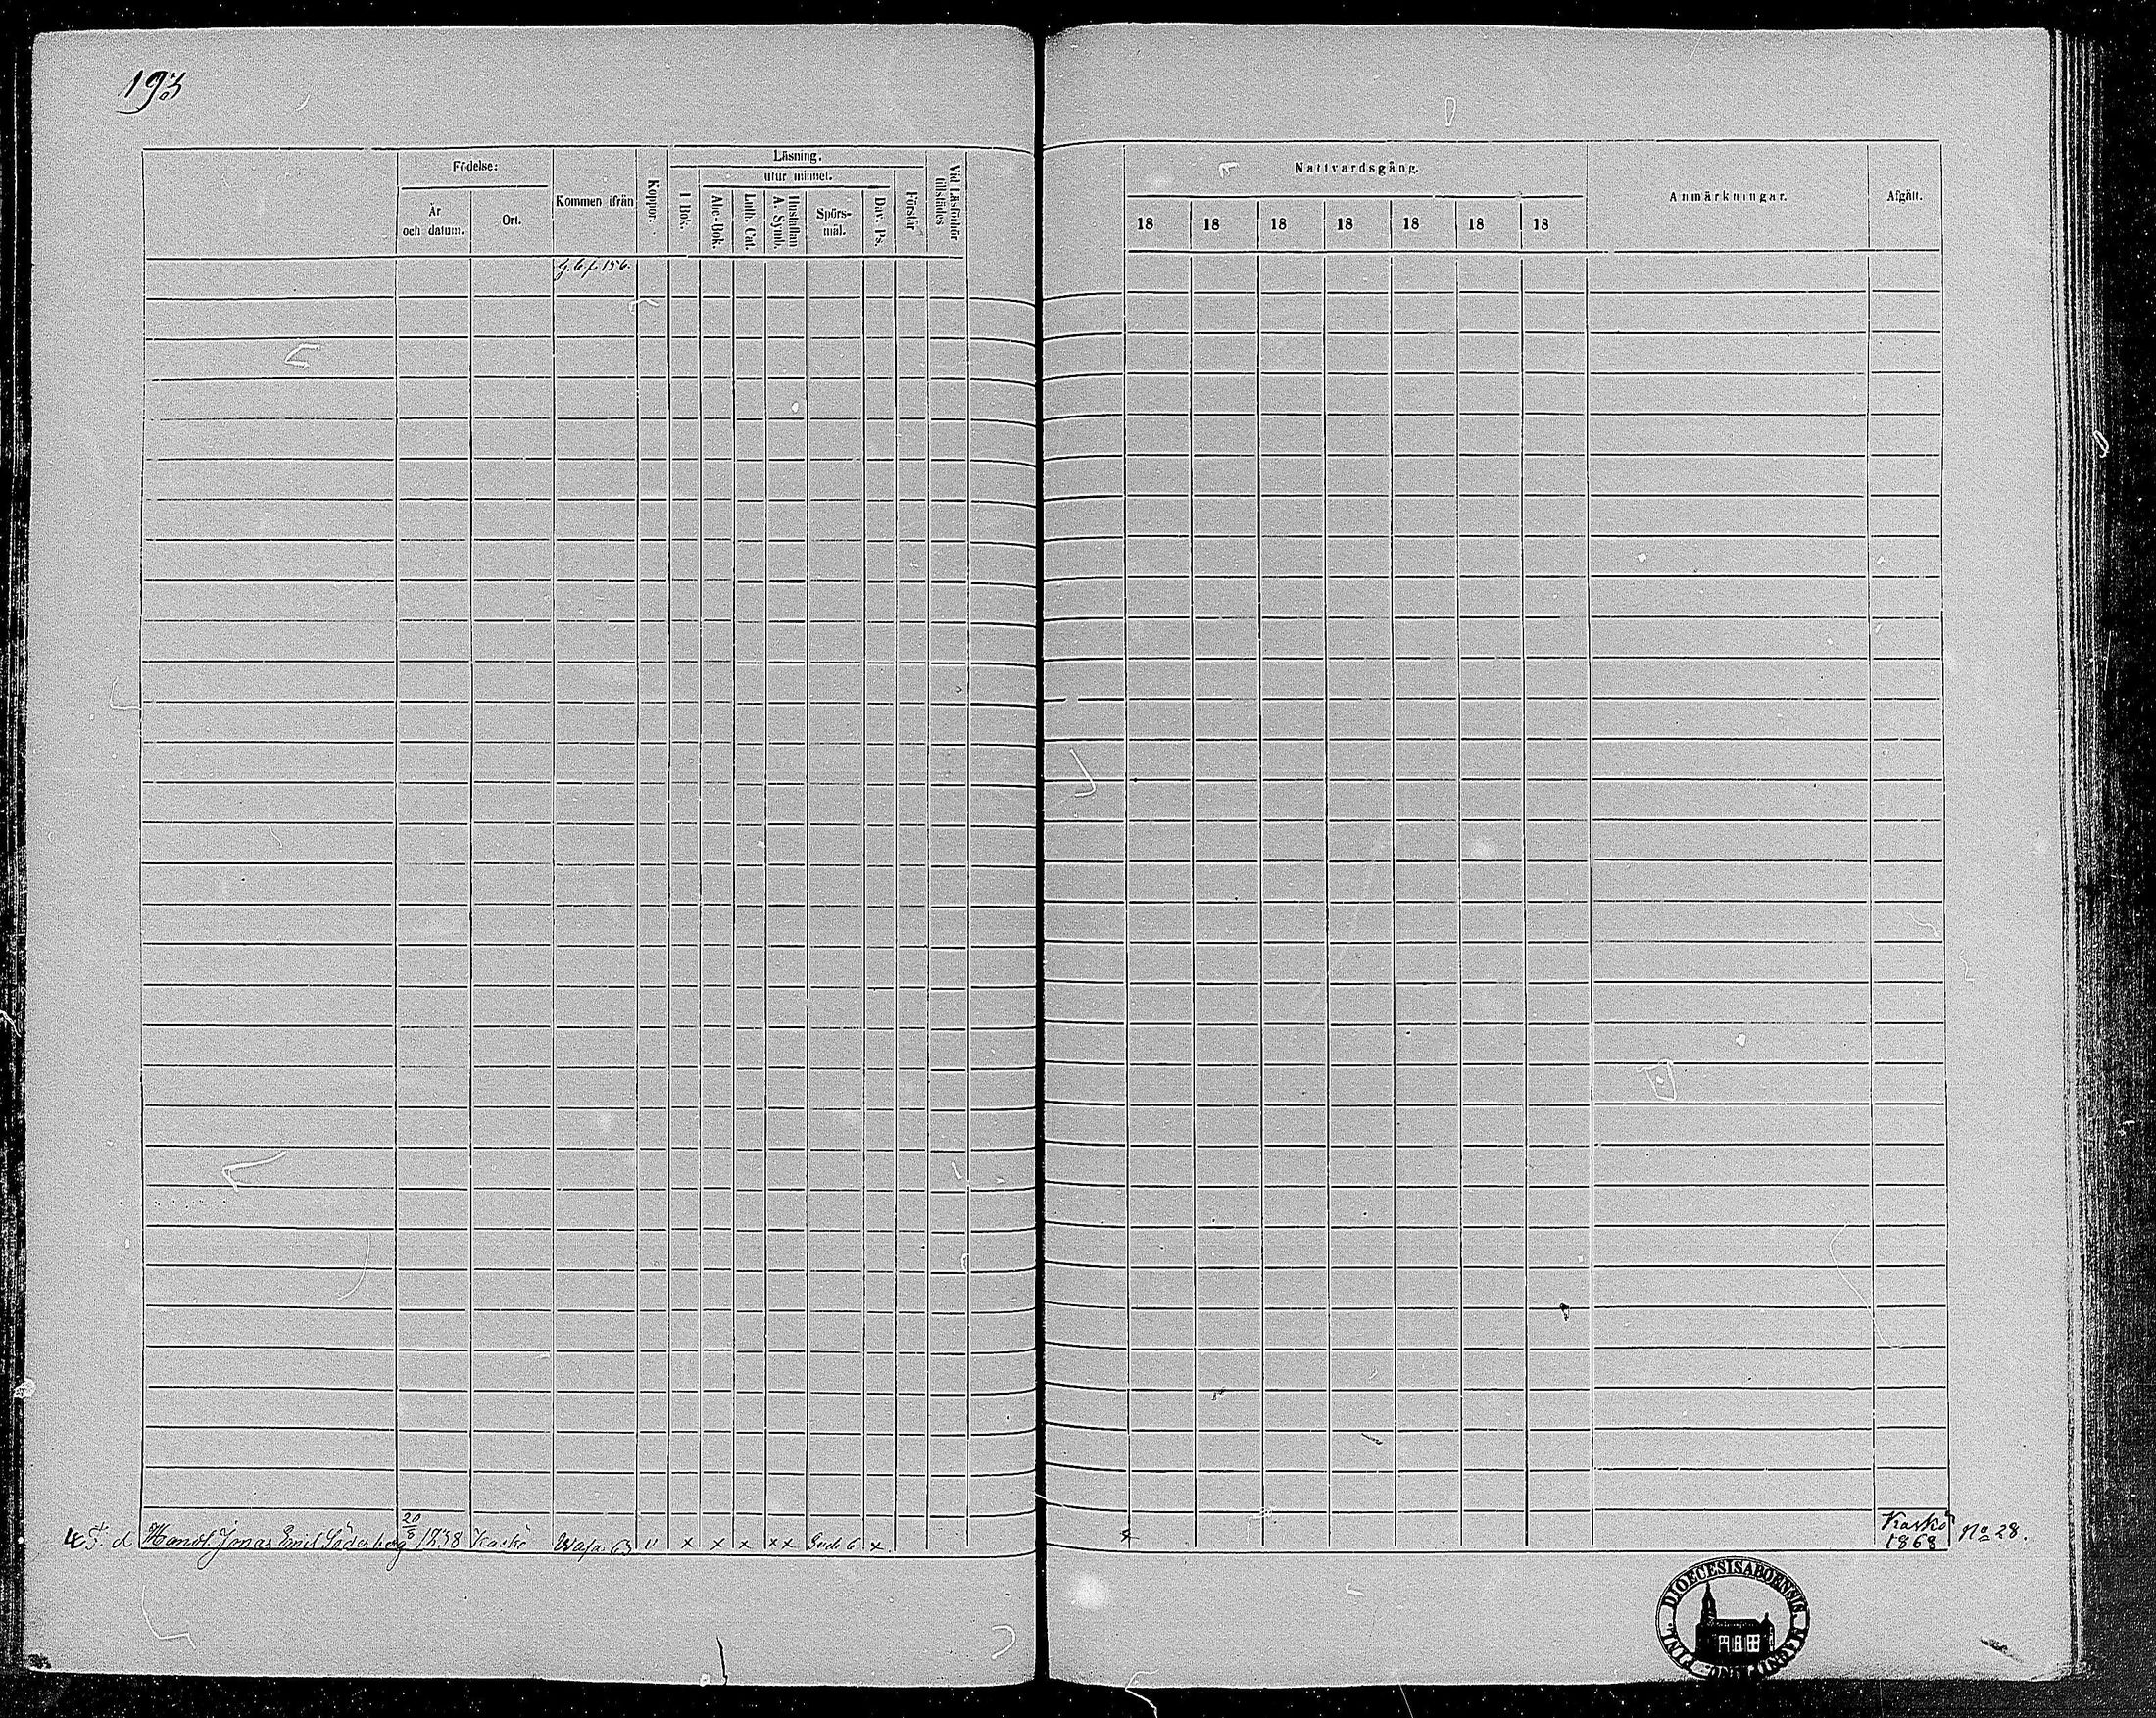 193
Födelse:
År och datum.
Ort.
Kommen ifrån
Koppor.
Läsning.
utur minnet.
I Bok.
Abc-Bok.
Luth. Cat.
Hustaflan A. Symb.
Spörsmål.
Dav. Ps.
Förstår
Vid Läsförhör tillstädes
Nattvardsgång.
18 18 18 18 18 18 18
Anmärkningar.
Afgått.
156.
d Handl. Jonas Emil Söderberg 20/8 1838 Kaskö Wasa 63 v x x x xx 6 x Kaskö 1868 No 28.
DIOECESIS ABOENSIS